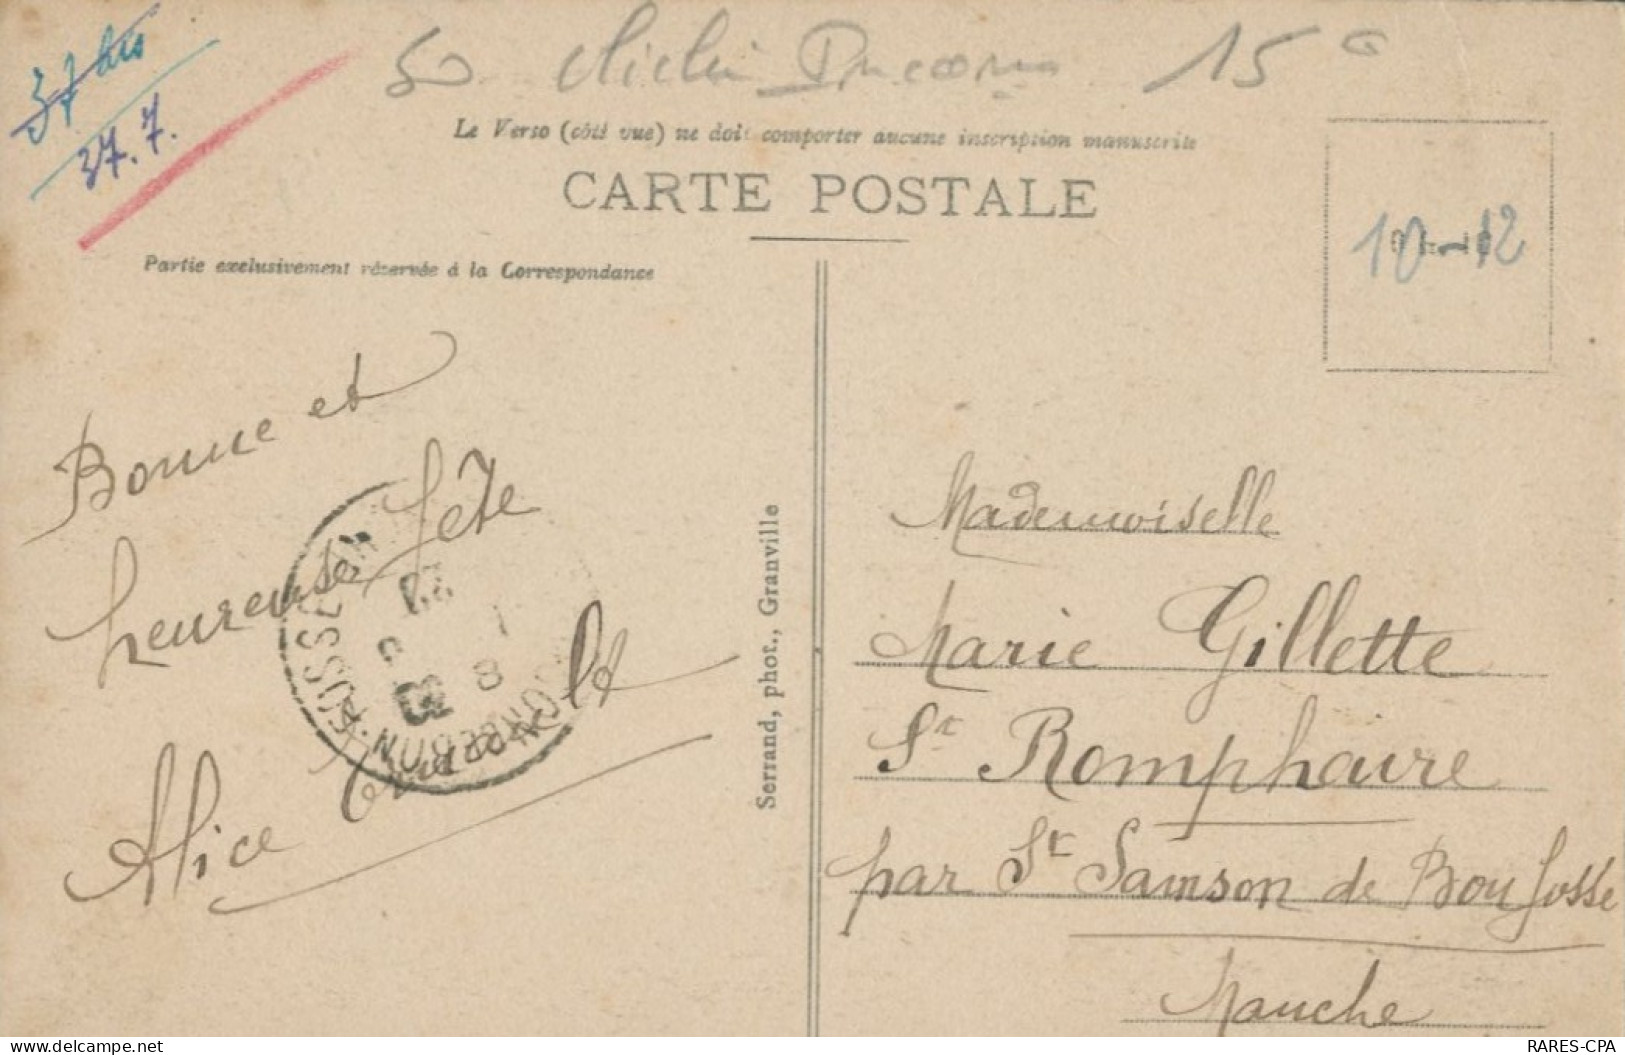 37 bis
37.7.
50 15
Le Verso (côté vue) ne doit comporter aucune inscription manuscrite
CARTE POSTALE
Partie exclusivement réservée à la Correspondance
10-12
Bonne et
heureuse fête
Alice
Serrand, phot., Granville
Mademoiselle
Marie Gillette
St Romphaire
par St Samson de Bonfosse
Manche
www.delcampe.net
RARES-CPA